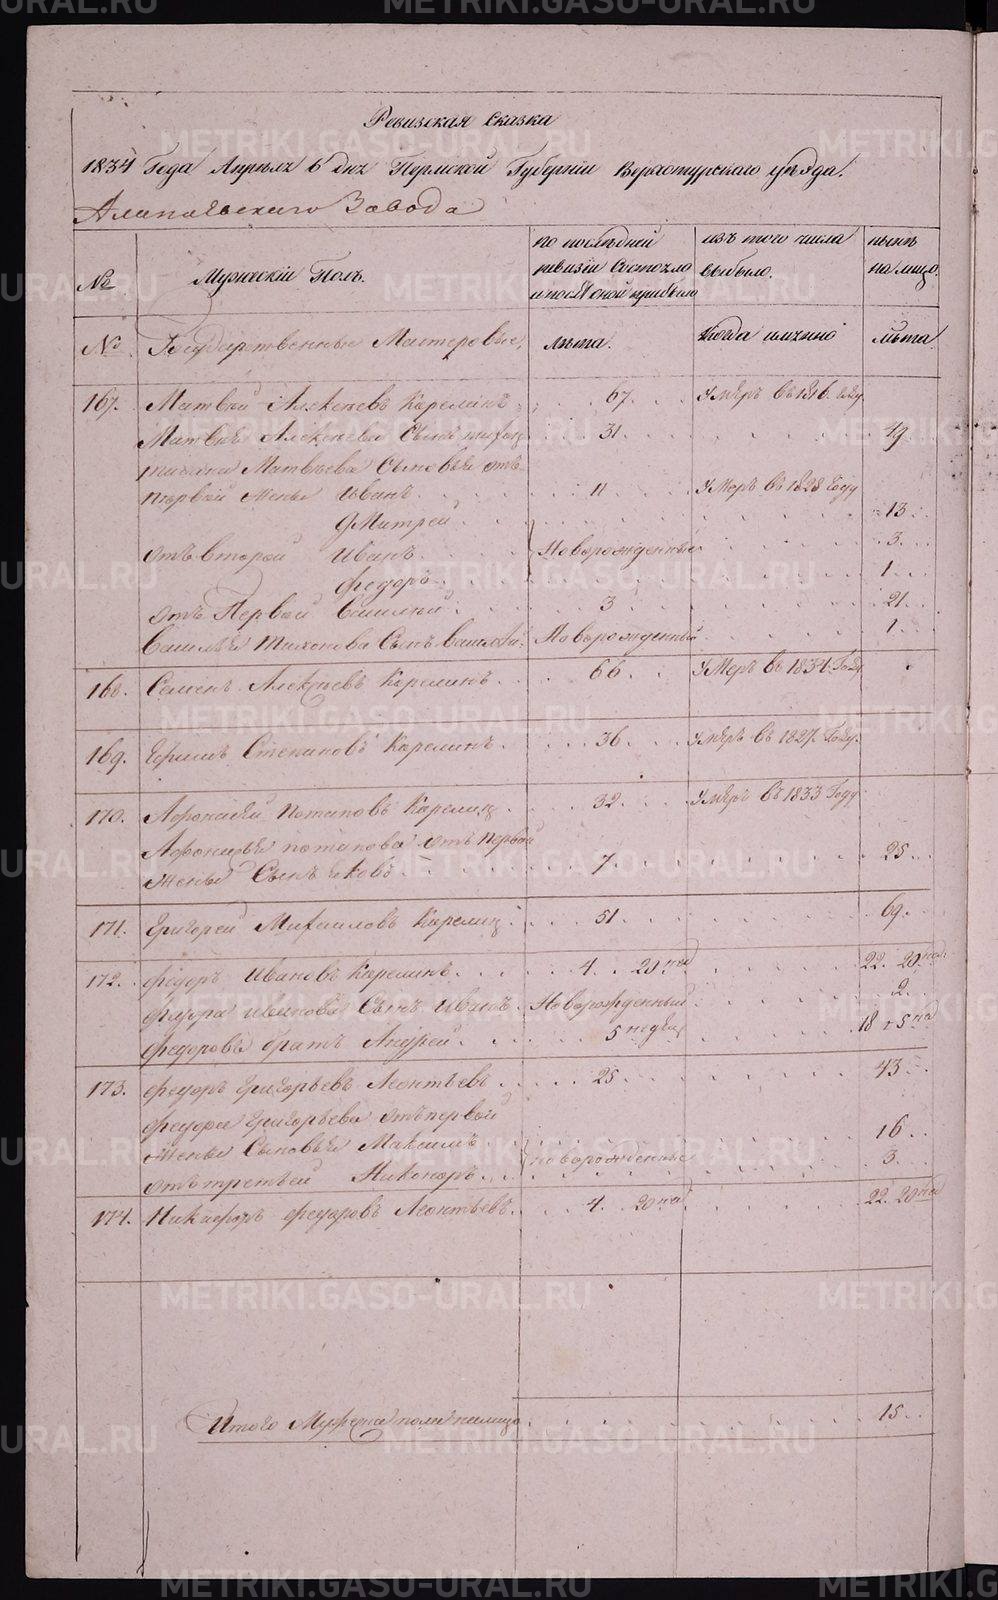 Ревизская Сказка
1834 Года Апреля 6 дня Пермской Губернии Верхотурского уезда.
Алапаевского Завода
№ Мужеский Полъ. по последней ревизіи Состояло и после оной прибыло изъ того числа выбыло. ныне на лицо.
№ Государственные Мастеровые, лета. Когда имянно лета.
167. Матвей Алексеевъ Карелинъ 67. Умеръ въ 1816. году
Матвея Алексеева Сынъ 31. 49.
Матвеева Сыновья отъ
первой жены Иванъ 11 Умеръ въ 1828 Году
Дмитрей 13
отъ второй Иванъ Новорожденные 3.
Федоръ 1
отъ Первой Василей 3 21
Василья Тихонова Сынъ Новорожденный 1
168. Семенъ Алексеевъ Карелинъ 66. Умеръ въ 1834. Году
169. Ефимъ Степановъ Карелинъ 36. Умеръ въ 1827. Году
170. Афонасей Потаповъ Карелин 32. Умеръ въ 1833 Году
Афонасья потапова отъ первой
жены Сынъ Яковъ 7. 25
171. Григорей Михайловъ Карелин 51. 69.
172. Федоръ Ивановъ Карелинъ 4. 20 нед 22. 20 нед
Федора Иванова Сынъ Иванъ Новорожденный 2.
Федоровъ братъ Андрей 5 недел 18 и 5 не
173. Федоръ Григорьевъ Леонтьевъ 25 43
Федора Григорьева отъ первой
жены Сыновья Максимъ новорожденные 16
отъ третьей Никоноръ 3
174. Никифоръ Федоровъ Леонтьевъ 4. 20 не 22. 20 не
Итого Мужеска пола налицо 15
METRIKI.GASO-URAL.RU